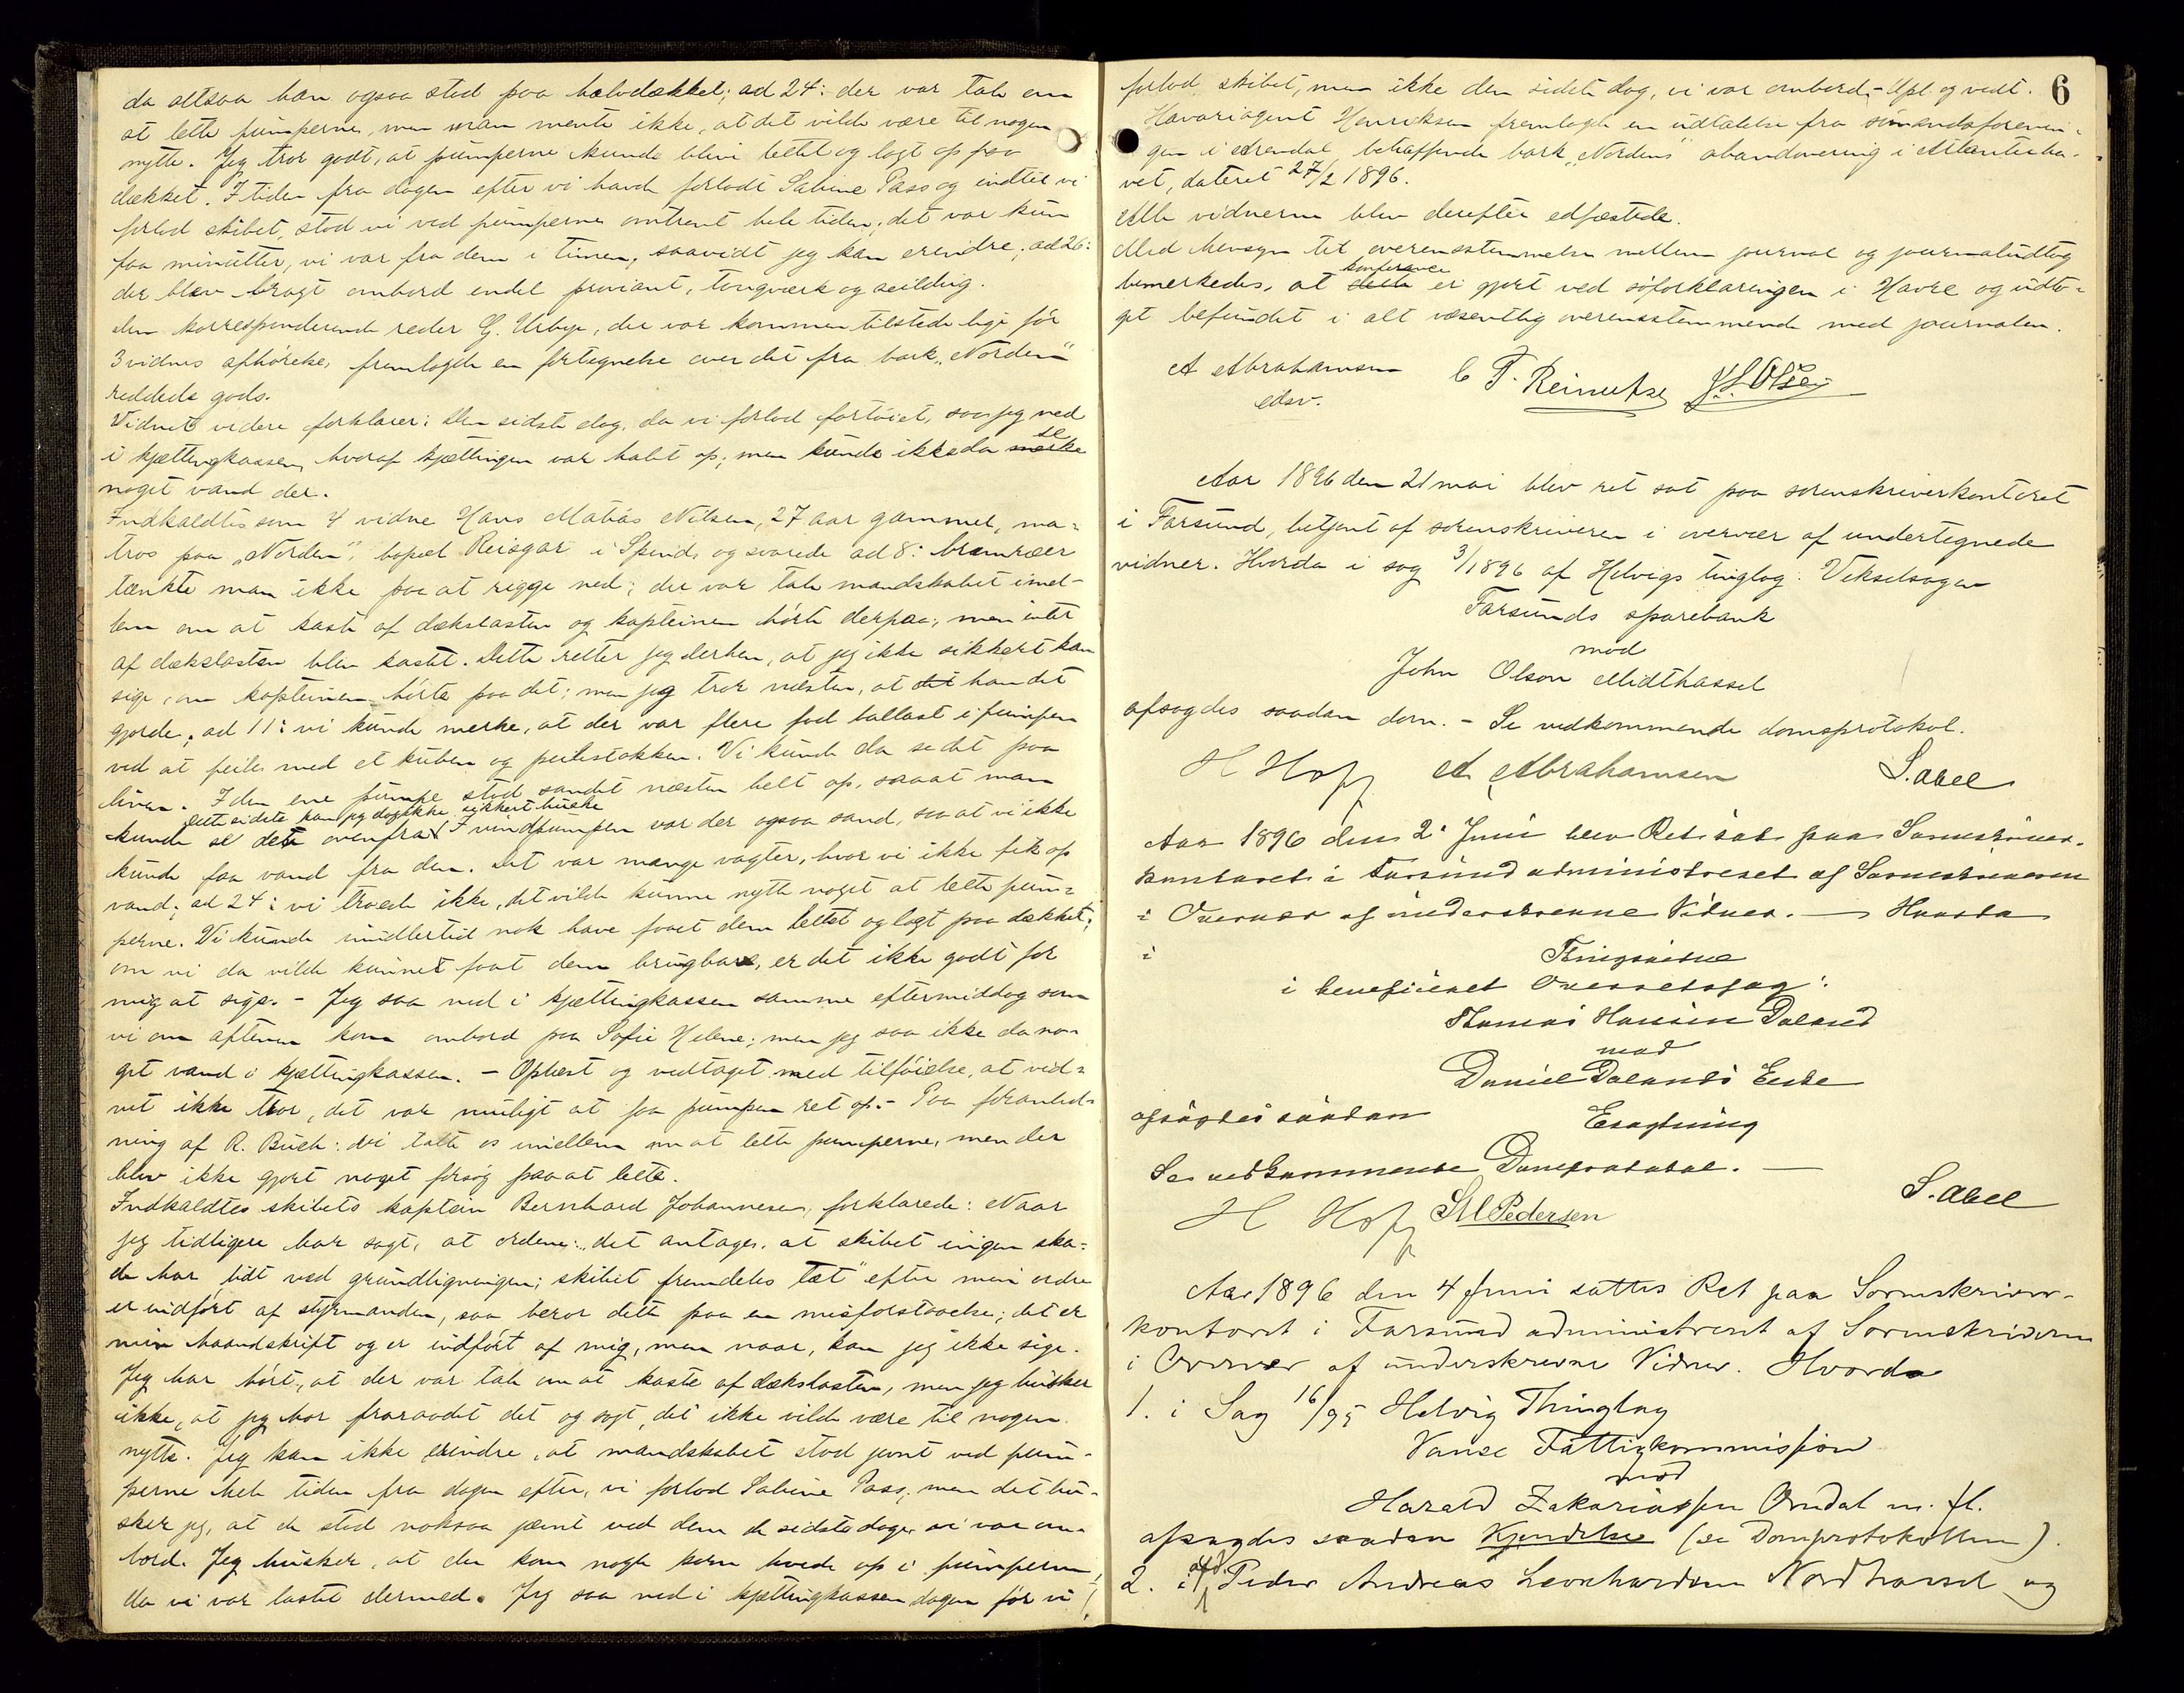 da altsaa han ogsaa stod paa halvdækket; ad 24: der var tale om
at lette pumperne, men man mente ikke, at det vilde være til nogen
nytte. Jeg tror godt, at pumperne kunde blive lettet og lagt op paa
dækket. I tiden fra dagen efter vi havde forladt Sabine Pass og indtil vi
forlod skibet, stod vi ved pumperne omtrent hele tiden; det var kun
faa minutter, vi var fra dem i timen, saavidt jeg kan erindre; ad 26:
der blev bragt ombord endel proviant, tougværk og seildug.
Den korresponderende reder G. Urbye, der var kommen tilstede lige før
3 vidnes afhørelse, fremlagde en fortegnelse over det fra bark "Norden"
reddede gods.
Vidnet videre forklarer: Den sidste dag, da vi forlod fartøiet, saa jeg ned
i kjættingkassen, hvoraf kjættingen var halet op; men kunde ikke da mærke se
noget vand der.
Indkaldtes som 4 vidne Hans Matias Nilsen, 27 aar gammel, ma-
tros paa "Norden", bopæl Reisgar i Spind, og svarede ad 8: bramræer
tænkte man ikke paa at rigge ned; der var tale mandskabet imel-
lem om at kaste af dækslasten og kapteinen hørte derpaa, men intet
af dækslasten blev kastet. Dette retter jeg derhen, at jeg ikke sikkert kan
sige, om kapteinen hørte paa det; men jeg tror næsten, at det han det
gjorde; ad 11: vi kunde merke, at der var flere fod ballast i pumpen
ved at peile med et kuben og peilestokken. Vi kunde da se det paa
linen. I den ene pumpe stod sandet næsten helt op, saa at man
dette sidste kan jeg dog ikke sikkert huske
kunde se dette ovenfra. I vindpumpen var der ogsaa sand, saa at vi ikke
kunde faa vand fra den. Det var mange vagter, hvor vi ikke fik op
vand; ad 24: vi troede ikke, det vilde kunne nytte noget at lette pum-
perne. Vi kunde imidlertid nok have faaet dem lettet og lagt paa dækket;
om vi da vilde kunnet faat dem brugbare, er det ikke godt for
mig at sige. - Jeg saa ned i kjættingkassen samme eftermiddag som
vi om aftenen kom ombord paa Sofie Helene; men jeg saa ikke da no-
get vand i kjættingkassen. - Oplæst og vedtaget med tilføielse, at vid-
net ikke tror, det var muligt at faa pumpen ret op. - Paa foranled-
ning af R. Buch: Vi talte os imellem om at lette pumperne, men der
blev ikke gjort noget forsøg paa at lette.
Indkaldtes skibets kaptein Bernhard Johannesen, forklarede: Naar
jeg tidligere har sagt, at ordene: "det antages, at skibet ingen ska-
de har lidt ved grundligningen; skibet fremdeles tæt" efter min ordre
er indført af styrmanden, saa beror dette paa en misforstaaelse; det er
min haandskrift og er indført af mig, men naar, kan jeg ikke sige.
Jeg har hørt, at der var tale om at kaste af dækslasten, men jeg husker
ikke, at jeg har fraraadet det og sagt, det ikke vilde være til nogen
nytte. Jeg kan ikke erindre, at mandskabet stod jevnt ved pum-
perne hele tiden fra dagen efter, vi forlod Sabine Pass; men det hu-
sker jeg, at de stod noksaa jævnt ved dem de sidste dage vi var om-
bord. Jeg husker, at der kom nogle korn hvede op i pumperne,
da vi var lastet dermed. Jeg saa ned i kjættingkassen dagen før vi
6
forlod skibet, men ikke den sidste dag, vi var ombord. - Opl. og vedt.
Havariagent Henriksen fremlagde en udtalelse fra sømandsforenin-
gen i Arendal betræffende bark "Nordens" abandonering i Atlanterha-
vet, dateret 27/2 1896.
Alle vidnerne blev derefter edfæstede.
Med hensyn til overensstemmelse mellem journal og journaludtog
bemerkedes, at dette konferance er gjort ved søforklaringen i Havre og udto-
get befundet i alt væsentlig overensstemmende med journalen.
A Abrahamsen C T. Reinertsen J.L. Olsen
edsv.
Aar 1896 den 21 mai blev ret sat paa sorenskriverkontoret
i Farsund, betjent af sorenskriveren i overvær af undertegnede
vidner. Hvorda i sag 3/1896 af Helvigs tinglag: Vekselsagen
Farsunds sparebank
mod
John Olson Midthassel
afsagdes saadan dom. - Se vedkommende domsprotokol.
H Hoff A Abrahamsen S. Abel
Aar 1896 den 2 Juni blev Ret sat paa Sorenskriver-
kontoret i Farsund administreret af Sorenskriveren
i Overvær af underskrevne Vidner. — Hvorda
i Thingsvidne
i beneficeret Overretssag:
Thomas Hansen Daland
mod
Daniel Dalands Enke
afsagdes saadan Eragtning
Se vedkommende Domsprotokol. —
H Hoff SM Pedersen S. Abel
Aar 1896 den 4 Juni sattes Ret paa Sorenskriver-
kontoret i Farsund administreret af Sorenskriveren
i Overvær af underskrevne Vidner. Hvorda
1. i Sag 16/95 Helvig Thinglag
Vanse Fattigkommission
mod
Harald Zakariassen Omdal m. fl.
afsagdes saadan Kjendelse (se Domprotokollen).
2. i Peder Andreas Leonhardsen Nordhassel og